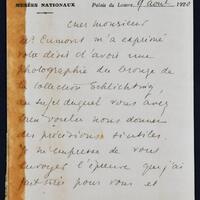 MUSÉES NATIONAUX
Palais du Louvre, 9 août 1920
Cher monsieur
Mr Cumont m'a exprimé
votre désir d'avoir une
photographie du bronze de
la collection Schlichting,
au sujet duquel vous avez
bien voulu nous donner
des précisions si utiles.
Je m'empresse de vous
envoyer l'épreuve que j'ai
fait tirer pour vous et